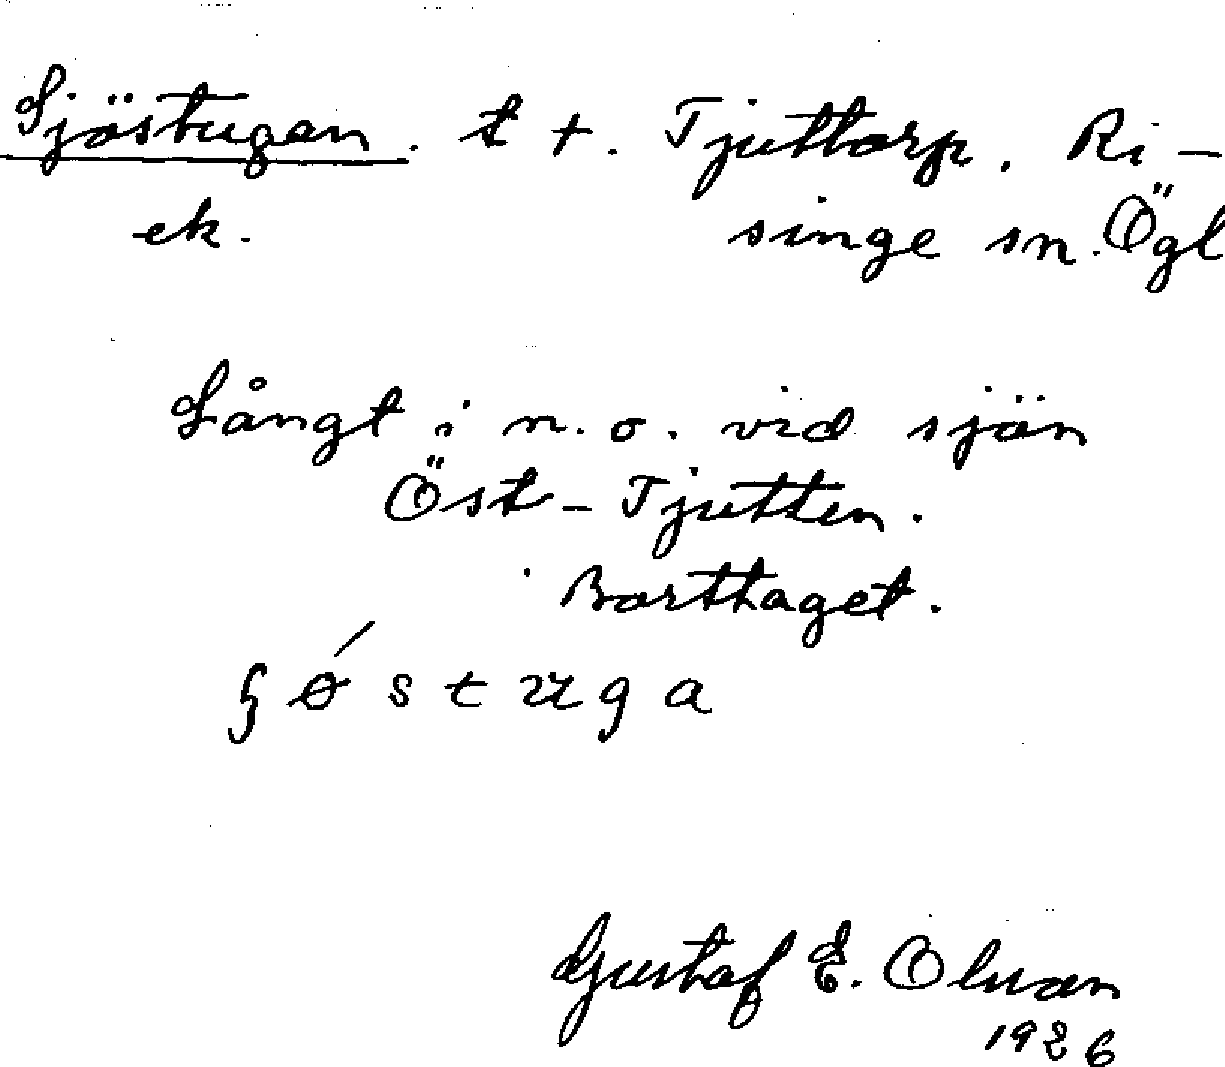 Sjöstugan. t +. Tjuttorp. Ri-
ek. singe sn. Ögl
Långt i n.o. vid sjön
Öst-Tjutten.
Borttaget.
ɧǿstuga
Gustaf E. Olson
1926